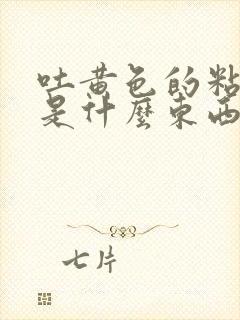 吐黄色的粘
是什麽东西
七片